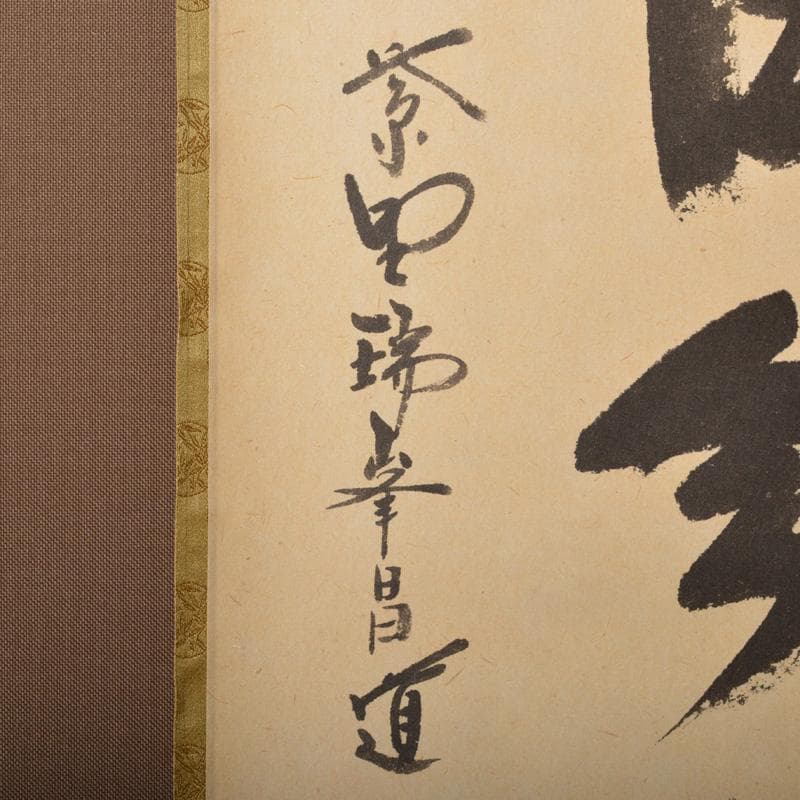 紫野瑞峯昌道